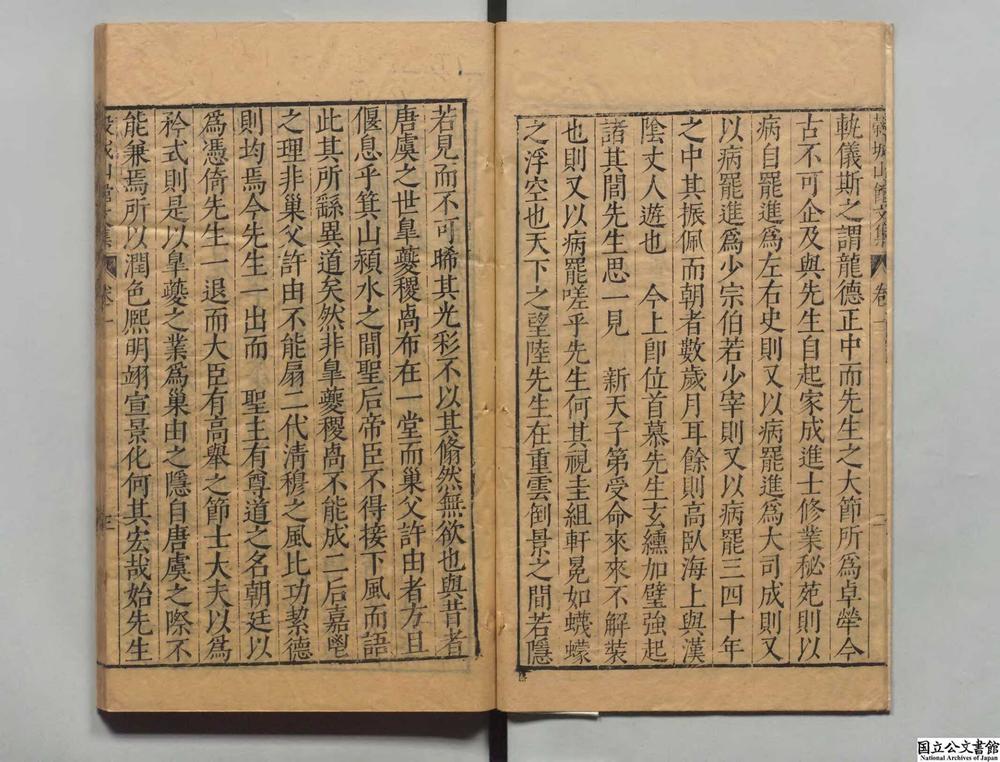 穀城山館文集 卷一 二
軌儀斯之謂龍德正中而先生之大節所爲卓犖今
古不可企及與先生自起家成進士修業秘苑則以
病自罷進爲左右史則又以病罷進爲大司成則又
以病罷進爲少宗伯若少宰則又以病罷三四十年
之中其振佩而朝者數歲月耳餘則高臥海上與漢
陰丈人遊也 今上卽位首慕先生玄纁加璧強起
諸其閭先生思一見 新天子第受命來來不解裝
也則又以病罷嗟乎先生何其視圭組軒冕如蠛蠓
之浮空也天下之望陸先生在重雲倒景之間若隱
若見而不可晞其光彩不以其翛然無欲也與昔者
唐虞之世臯夔稷卨布在一堂而巢父許由者方且
偃息乎箕山潁水之間聖后帝臣不得接下風而語
此其所繇異道矣然非臯夔稷卨不能成二后嘉鬯
之理非巢父許由不能扇二代清穆之風比功絜德
則均焉今先生一出而 聖主有尊道之名朝廷以
爲憑倚先生一退而大臣有高舉之節士大夫以爲
衿式則是以臯夔之業爲巢由之隱自唐虞之際不
能兼焉所以潤色熈明翊宣景化何其宏哉始先生
穀城山館文集 卷一 三
国立公文書館
National Archives of Japan